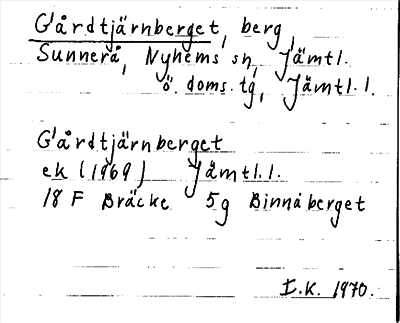 Gårdtjärnberget, berg,
Sunnerå, Nyhems sn, Jämtl.
ö. doms.tg, Jämtl.l.
Gårdtjärnberget
ek (1969) Jämtl.l.
18 F Bräcke 5g Binnåberget
I.K. 1970.